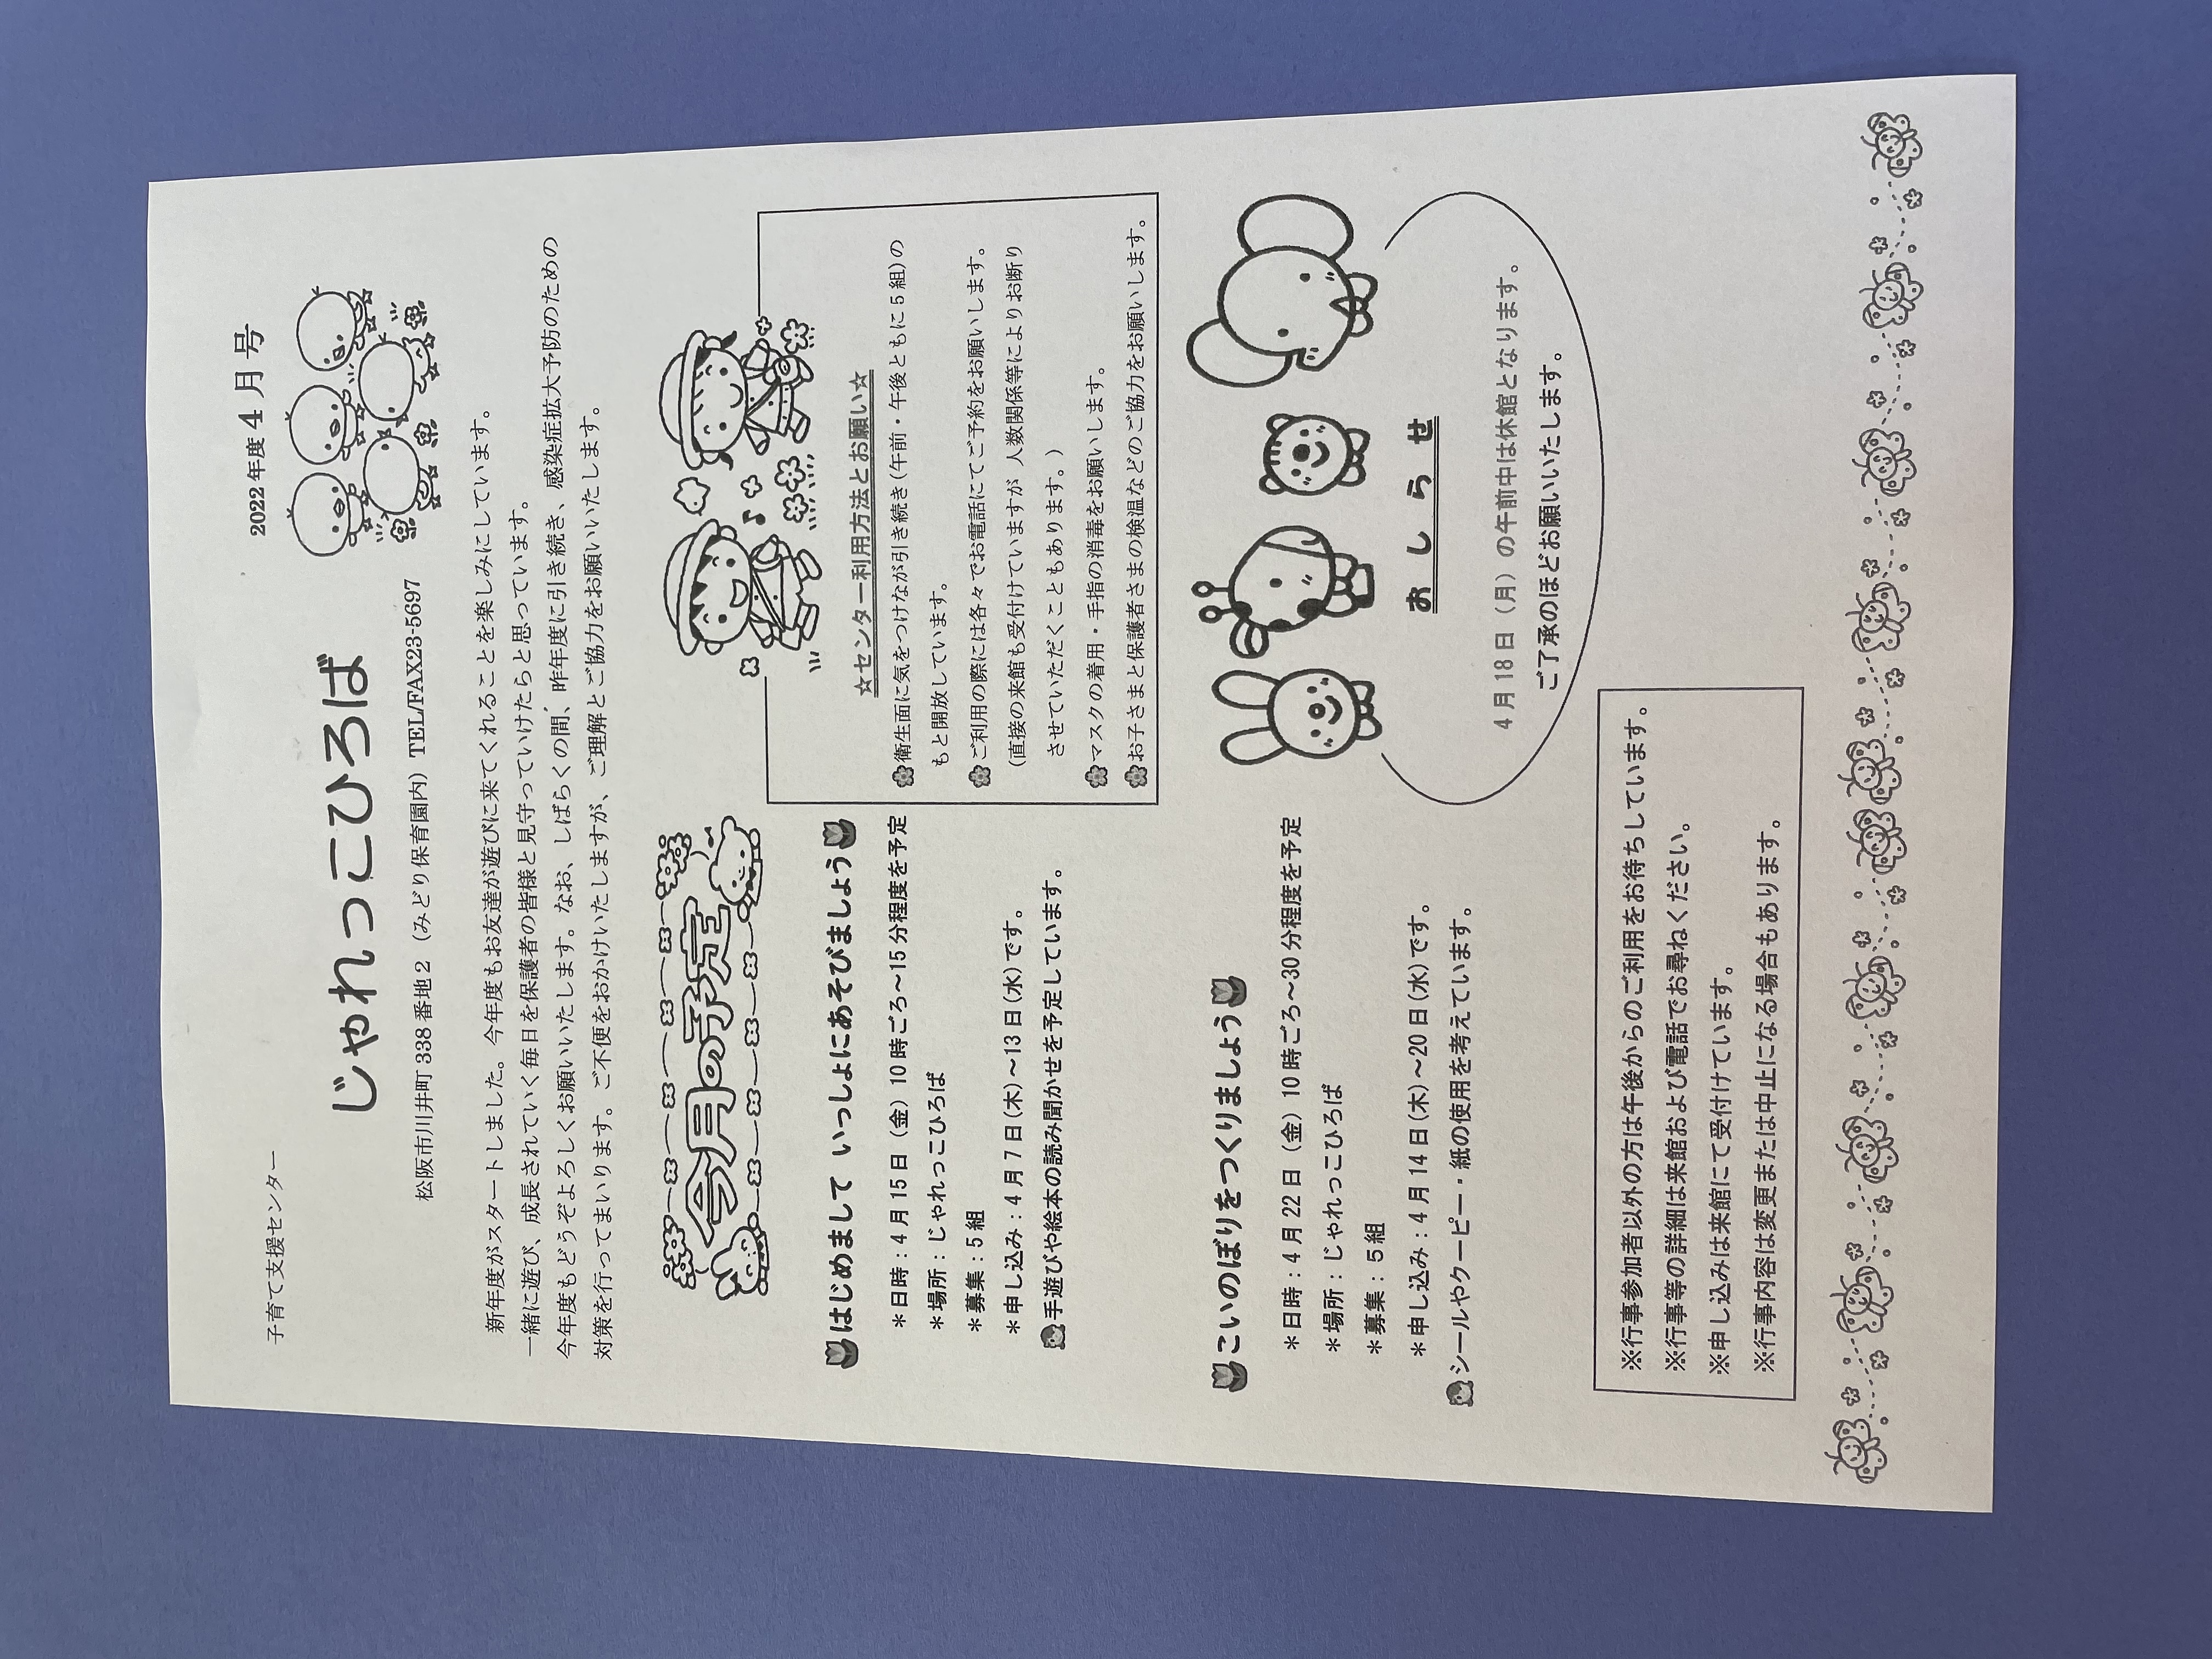 子育て支援センター
2022年度4月号
じゃれっこひろば
松阪市川井町338番地2（みどり保育園内）TEL/FAX23-5697
新年度がスタートしました。今年度もお友達が遊びに来てくれることを楽しみにしています。
一緒に遊び、成長されていく毎日を保護者の皆様と見守っていけたらと思っています。
今年度もどうぞよろしくお願いいたします。なお、しばらくの間、昨年度に引き続き、感染症拡大予防のための
対策を行ってまいります。ご不便をおかけいたしますが、ご理解とご協力をお願いいたします。
今月の予定
はじめまして いっしょにあそびましょう
＊日時：4月15日（金）10時ごろ～15分程度を予定
＊場所：じゃれっこひろば
＊募集：5組
＊申し込み：4月7日(木)～13日(水)です。
手遊びや絵本の読み聞かせを予定しています。
こいのぼりをつくりましょう
＊日時：4月22日（金）10時ごろ～30分程度を予定
＊場所：じゃれっこひろば
＊募集：5組
＊申し込み：4月14日(木)～20日(水)です。
シールやクーピー・紙の使用を考えています。
☆センター利用方法とお願い☆
衛生面に気をつけながら引き続き(午前・午後ともに5組)の
もと開放しています。
ご利用の際には各々でお電話にてご予約をお願いします。
(直接の来館も受付けていますが 人数関係等によりお断り
させていただくこともあります。)
マスクの着用・手指の消毒をお願いします。
お子さまと保護者さまの検温などのご協力をお願いします。
おしらせ
4月18日（月）の午前中は休館となります。
ご了承のほどお願いいたします。
※行事参加者以外の方は午後からのご利用をお待ちしています。
※行事等の詳細は来館および電話でお尋ねください。
※申し込みは来館にて受付けています。
※行事内容は変更または中止になる場合もあります。